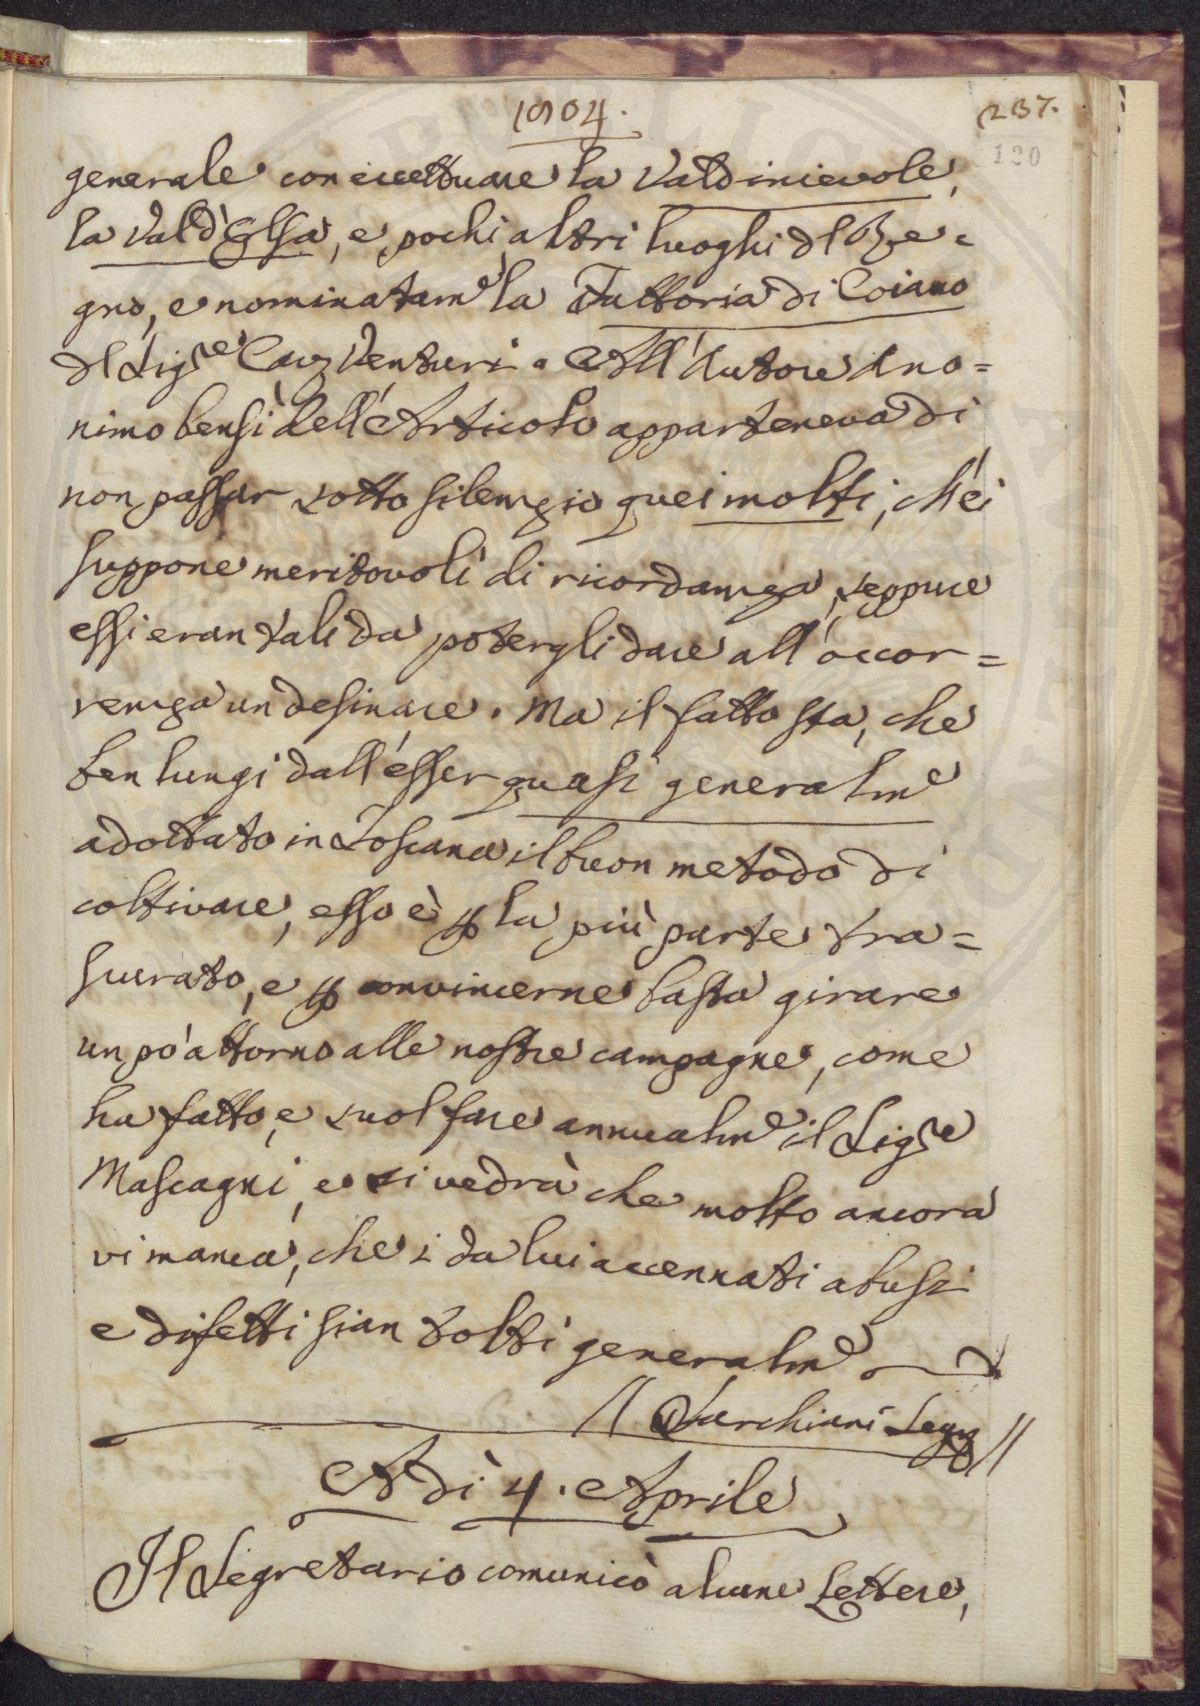 1804.
237.
120
generale con eccettuare la Valdinievole,
la Val d'Elsa, e pochi altri luoghi dl Re=
gno, e nominatamᵉ la Fattoria di Coiano
dl Sigʳᵉ Cavʳ Venturi. All'Autore Ano=
nimo bensì dell'Articolo apparteneva di
non passar sotto silenzio quei molti, ch'ei
suppone meritovoli di ricordanza, seppure
essi eran tali da potergli dare all'occor=
renza un desinare. Ma il fatto sta, che
ben lungi dall'esser quasi generalmᵉ
adottato in Toscana il buon metodo di
coltivare, esso è ꝑ la più parte tra=
scurato, e ꝑ convincerne basta girare
un po' attorno alle nostre campagne, come
ha fatto, e suol fare annualmᵉ il Sigʳᵉ
Mascagni, e si vedrà che molto ancora
vi manca, che i da lui accennati abusi
e difetti sian tolti generalmᵉ
// Sarchiani Segʳ //
A dì 4. Aprile
Il Segretario comunicò alcune Lettere,